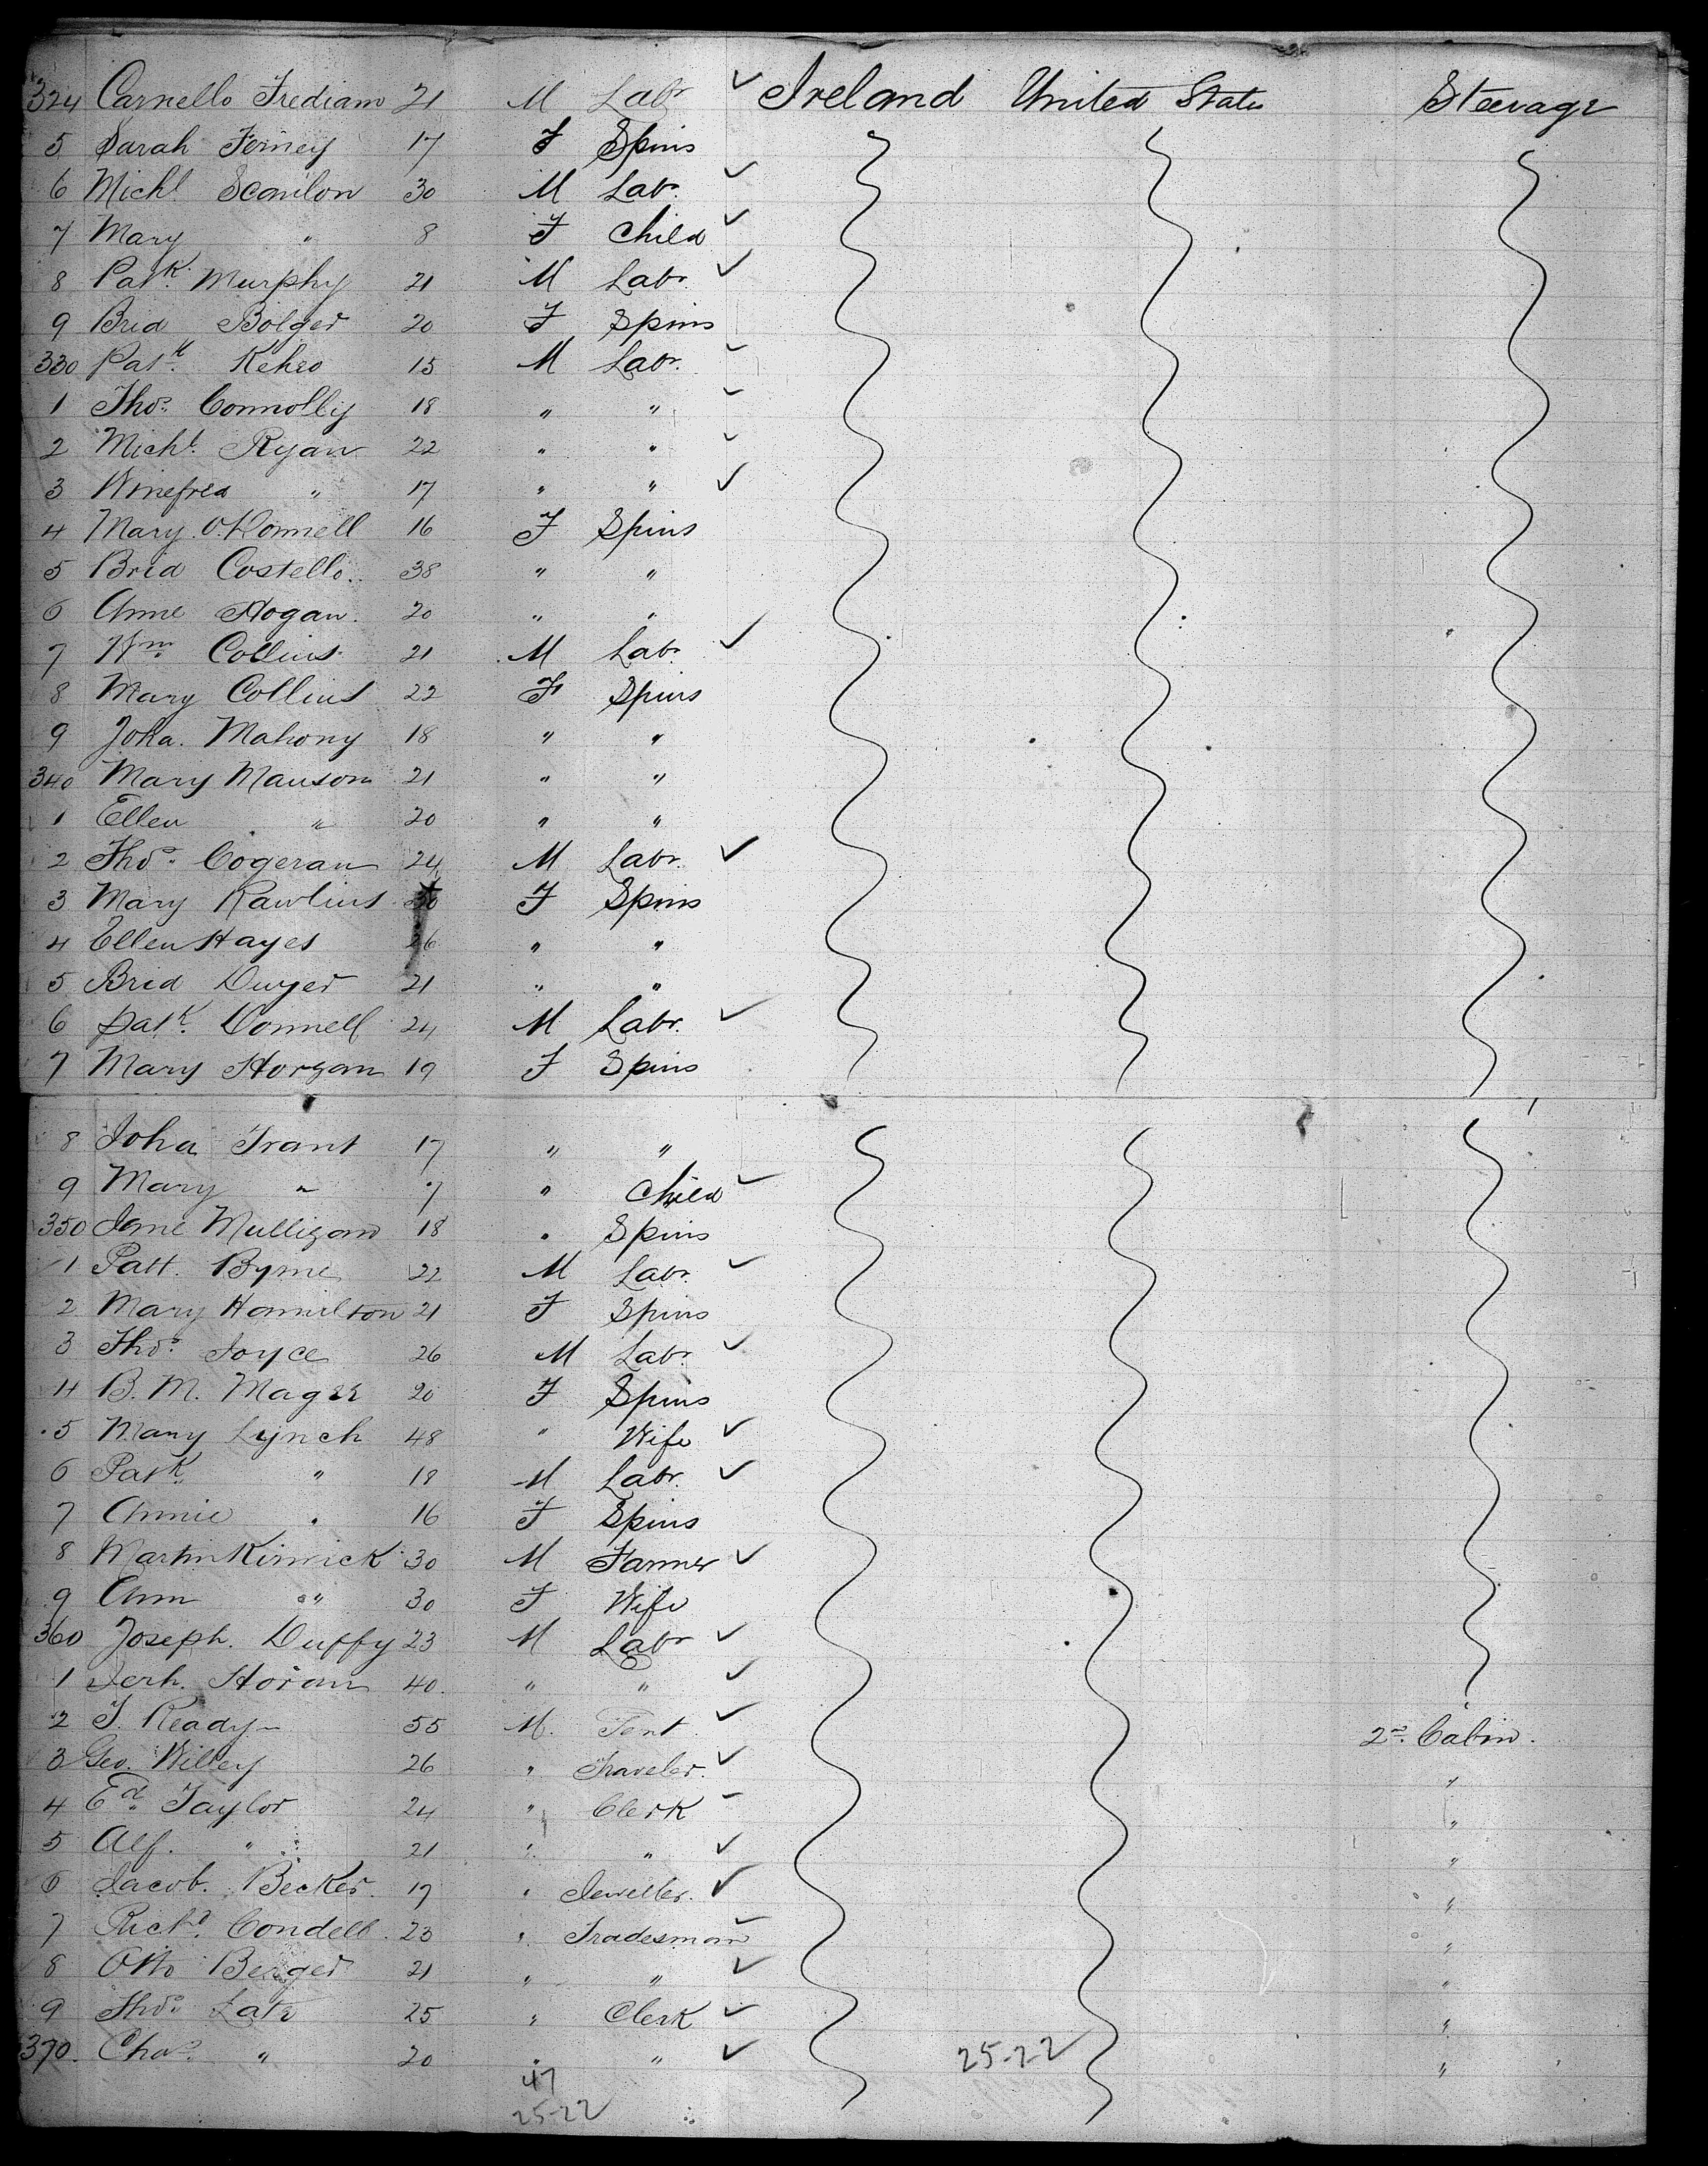 324 Carnello Frediam 21 M Labr ✓ Ireland United States Steerage
5 Sarah Ferney 17 F Spins
6 Michl. Scanlon 30 M Labr. ✓
7 Mary " 8 F Child ✓
8 Patk. Murphy 21 M Labr. ✓
9 Brid Bolger 20 F Spins
330 Patk. Keheo 15 M Labr. ✓
1 Thos. Connolly 18 " " ✓
2 Michl. Ryan 22 " " ✓
3 Winefred " 17 " " ✓
4 Mary O'Donnell 16 F Spins
5 Brid Costello 38 " "
6 Anne Hogan. 20 " "
7 Wm. Collins 21 M Labr. ✓
8 Mary Collins 22 F Spins
9 Joha. Mahony 18 " "
340 Mary Manson 21 " "
1 Ellen " 20 " "
2 Thos. Cogeran 24 M Labr. ✓
3 Mary Rawlins F Spins
4 Ellen Hayes 26 " "
5 Brid Dwyer 21 " "
6 Patk. Donnell 24 M Labr. ✓
7 Mary Horgan 19 F Spins
8 Joha Trant 17 " "
9 Mary " 7 " Child ✓
350 Jane Mulligan 18 " Spins
1 Patt. Byrne 22 M Labr. ✓
2 Mary Hamilton 21 F Spins
3 Thos. Joyce 26 M Labr. ✓
4 B. M. Magee 20 F Spins
5 Mary Lynch 48 " Wife ✓
6 Patk. " 18 M Labr. ✓
7 Annie " 16 F Spins
8 Martin Kirwick 30 M Farmer ✓
9 Ann " 30 F Wife
360 Joseph. Duffy 23 M Labr ✓
1 Jerh. Horan 40. " " ✓
2 J. Ready 55 M. Gent. ✓ 2nd. Cabin.
3 Geo. Willey 26 " Traveler. ✓ "
4 Ed. Taylor 24 " Clerk ✓ "
5 Alf. " 21 " " ✓ "
6 Jacob. Becker. 19 " Jeweller. ✓ "
7 Richd. Condell. 23 " Tradesman ✓ "
8 Otto Berger 21 " " ✓ "
9 Thos. Latz 25 " Clerk ✓ "
370. Chas. " 20 " " ✓ 25-22 "
47
25-22